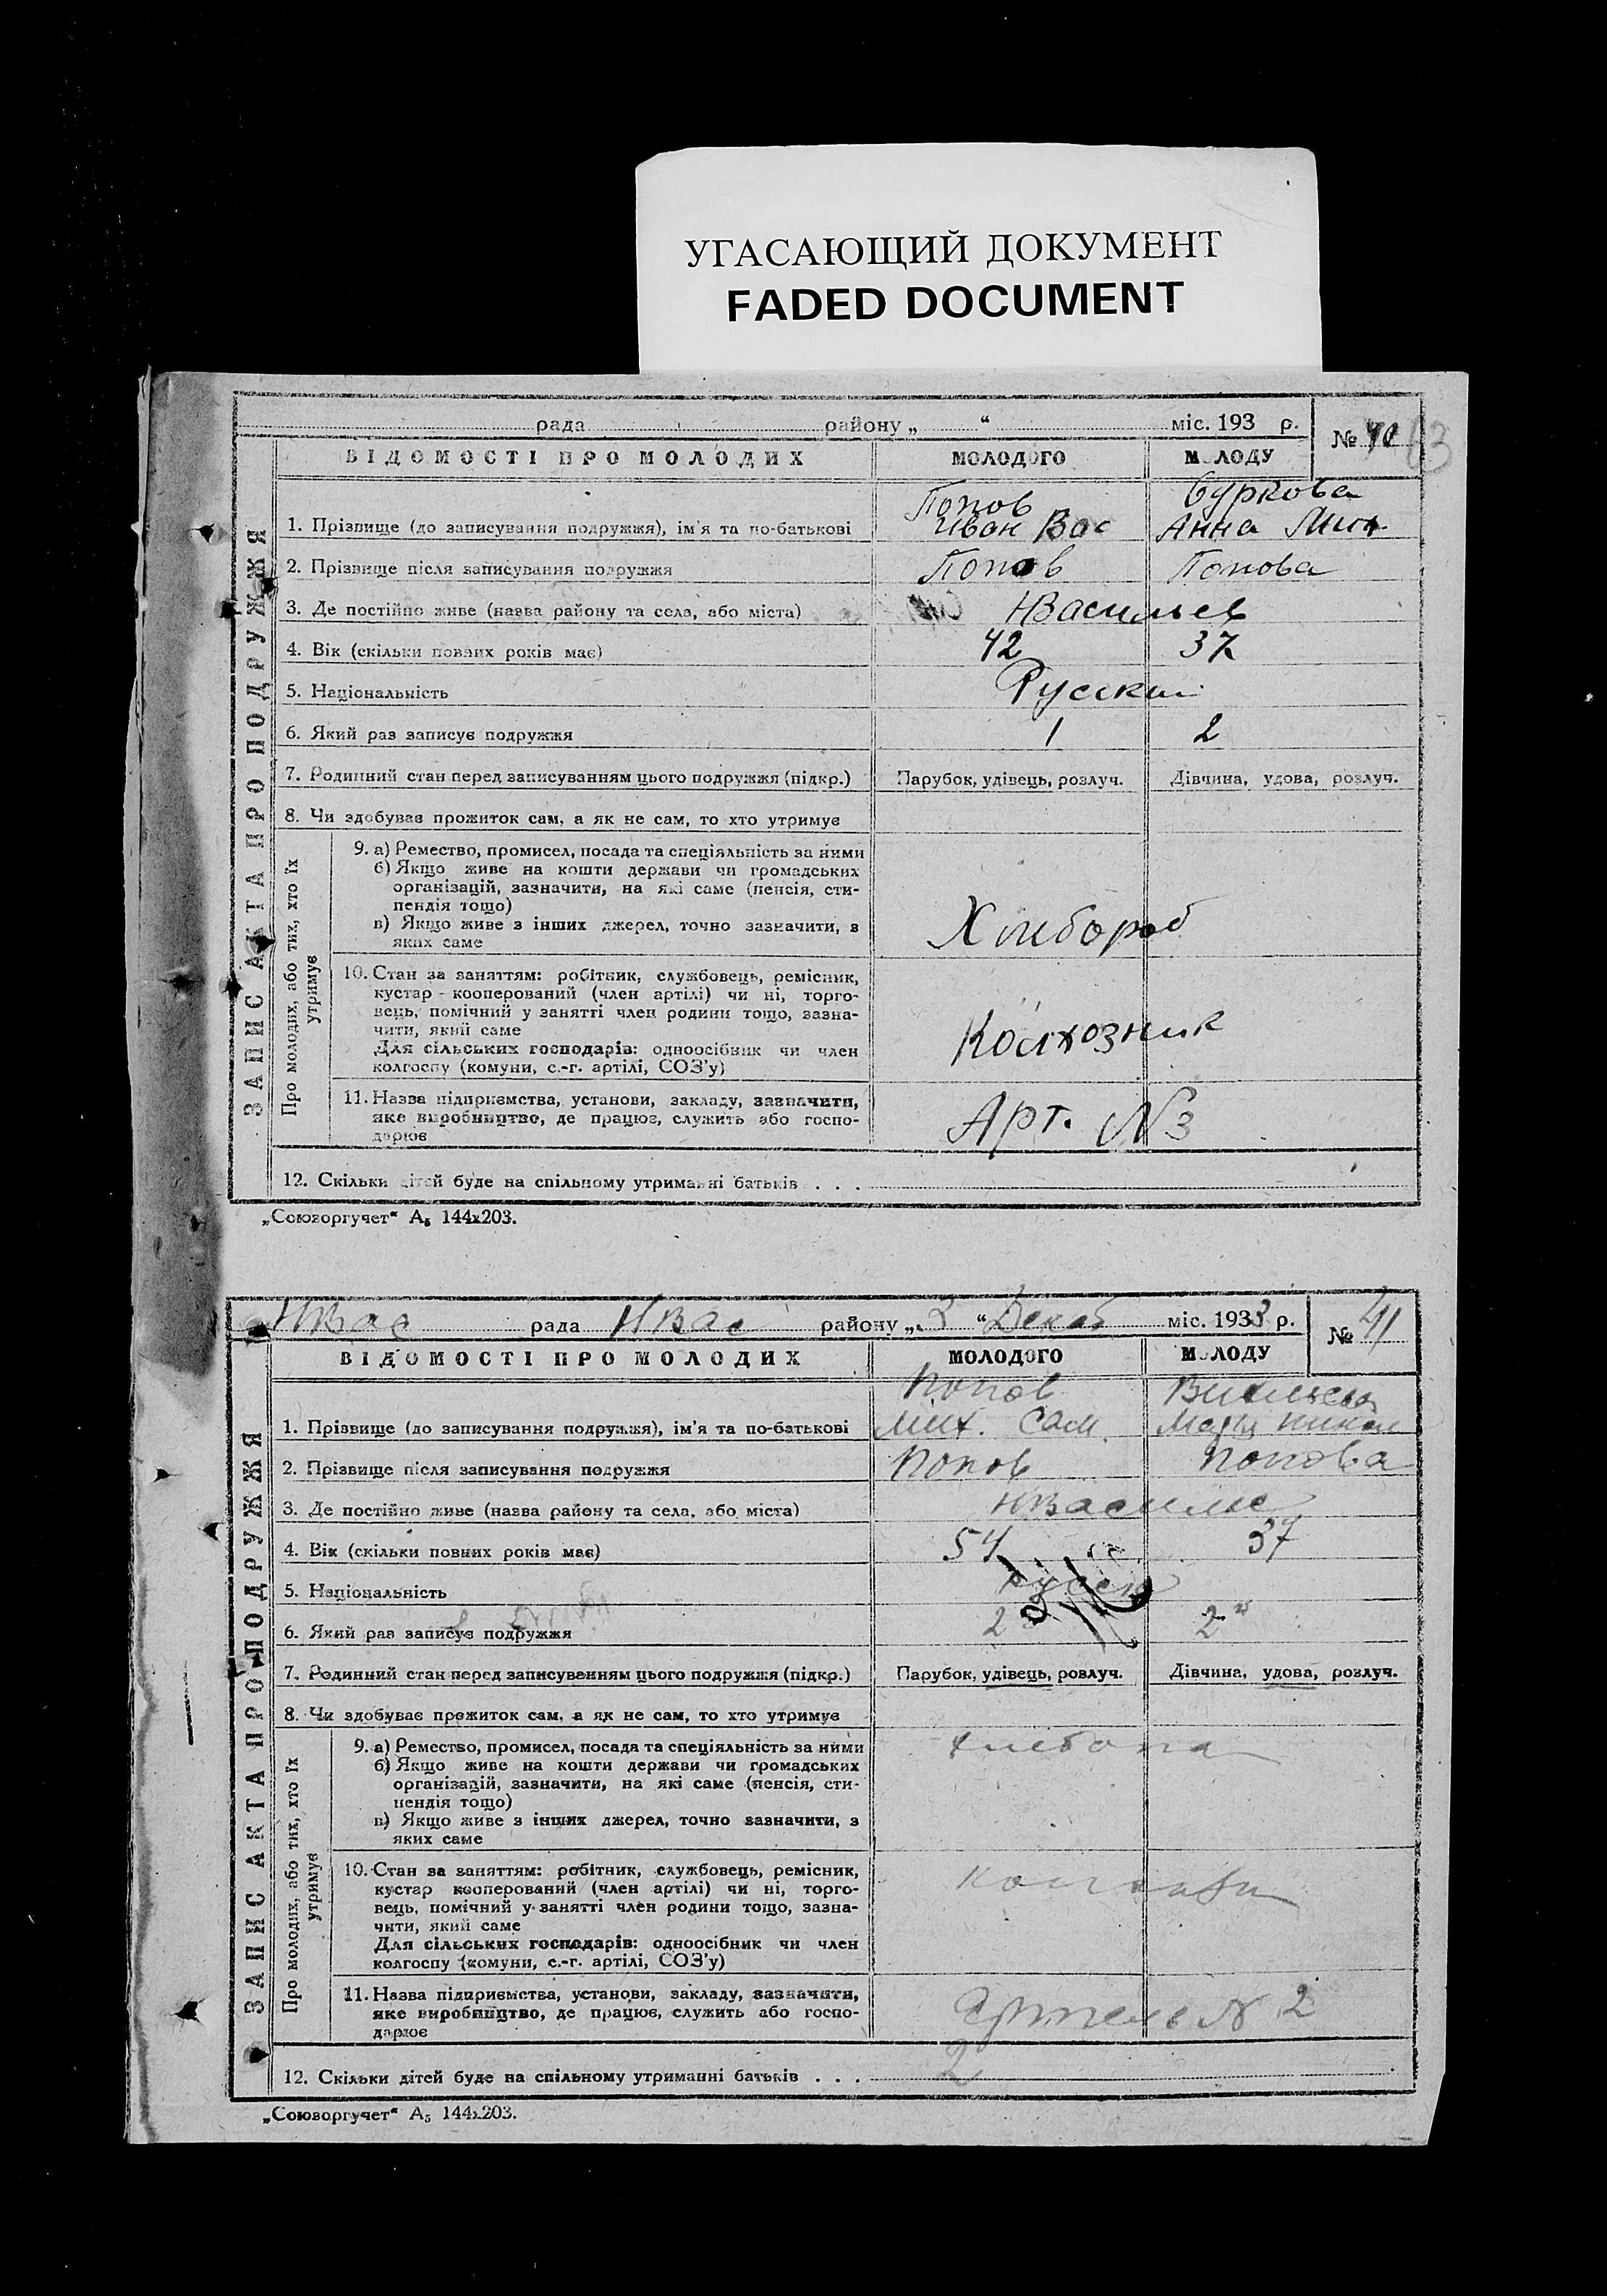 УГАСАЮЩИЙ ДОКУМЕНТ
FADED DOCUMENT
рада району „ “ міс. 193 р. № 40 63
ЗАПИС АКТА ПРО ПОДРУЖЖЯ
ВІДОМОСТІ ПРО МОЛОДИХ МОЛОДОГО МОЛОДУ
Попов Суркова
1. Прізвище (до записування подружжя), ім'я та по-батькові Иван Вас Анна Мит.
2. Прізвище після записування подружжя Попов Попова
3. Де постійно живе (назва району та села, або міста) НВасильев
4. Вік (скільки повних років має) 42 37
5. Національність Русский
6. Який раз записує подружжя 1 2
7. Родинний стан перед записуванням цього подружжя (підкр.) Парубок, удівець, розлуч. Дівчина, удова, розлуч.
8. Чи здобуває прожиток сам, а як не сам, то хто утримує
Про молодих, або тих, хто їх утримує
9. а) Ремество, промисел, посада та спеціяльність за ними
б) Якщо живе на кошти держави чи громадських
організацій, зазначити, на які саме (пенсія, сти-
пендія тощо)
в) Якщо живе з інших джерел, точно зазначити, з
яких саме
Хлибороб
10. Стан за заняттям: робітник, службовець, ремісник,
кустар - кооперований (член артілі) чи ні, торго-
вець, помічний у занятті член родини тощо, зазна-
чити, який саме
Для сільських господарів: одноосібник чи член
колгоспу (комуни, с.-г. артілі, СОЗ'у)
Колхозник
11. Назва підприємства, установи, закладу, зазначити,
яке виробництво, де працює, служить або госпо-
дарює
Арт. №3
12. Скільки дітей буде на спільному утриманні батьків . . .
„Союзоргучет“ А5 144х203.
НВас рада НВас району „3 “ Декаб міс. 1933 р. № 41
ЗАПИС АКТА ПРО ПОДРУЖЖЯ
ВІДОМОСТІ ПРО МОЛОДИХ МОЛОДОГО МОЛОДУ
Попов
1. Прізвище (до записування подружжя), ім'я та по-батькові Мих. Сам.
2. Прізвище після записування подружжя Попов Попова
3. Де постійно живе (назва району та села, або міста) НВасилье
4. Вік (скільки повних років має) 54 37
5. Національність
6. Який раз записує подружжя 2 2
7. Родинний стан перед записуванням цього подружжя (підкр.) Парубок, удівець, розлуч. Дівчина, удова, розлуч.
8. Чи здобуває прожиток сам, а як не сам, то хто утримує
Про молодих, або тих, хто їх утримує
9. а) Ремество, промисел, посада та спеціяльність за ними
б) Якщо живе на кошти держави чи громадських
організацій, зазначити, на які саме (пенсія, сти-
пендія тощо)
в) Якщо живе з інших джерел, точно зазначити, з
яких саме
10. Стан за заняттям: робітник, службовець, ремісник,
кустар кооперований (член артілі) чи ні, торго-
вець, помічний у занятті член родини тощо, зазна-
чити, який саме
Для сільських господарів: одноосібник чи член
колгоспу (комуни, с.-г. артілі, СОЗ'у)
11. Назва підприємства, установи, закладу, зазначити,
яке виробництво, де працює, служить або госпо-
дарює
Артель № 2
12. Скільки дітей буде на спільному утриманні батьків . . . 2
„Союзоргучет“ А5 144х203.